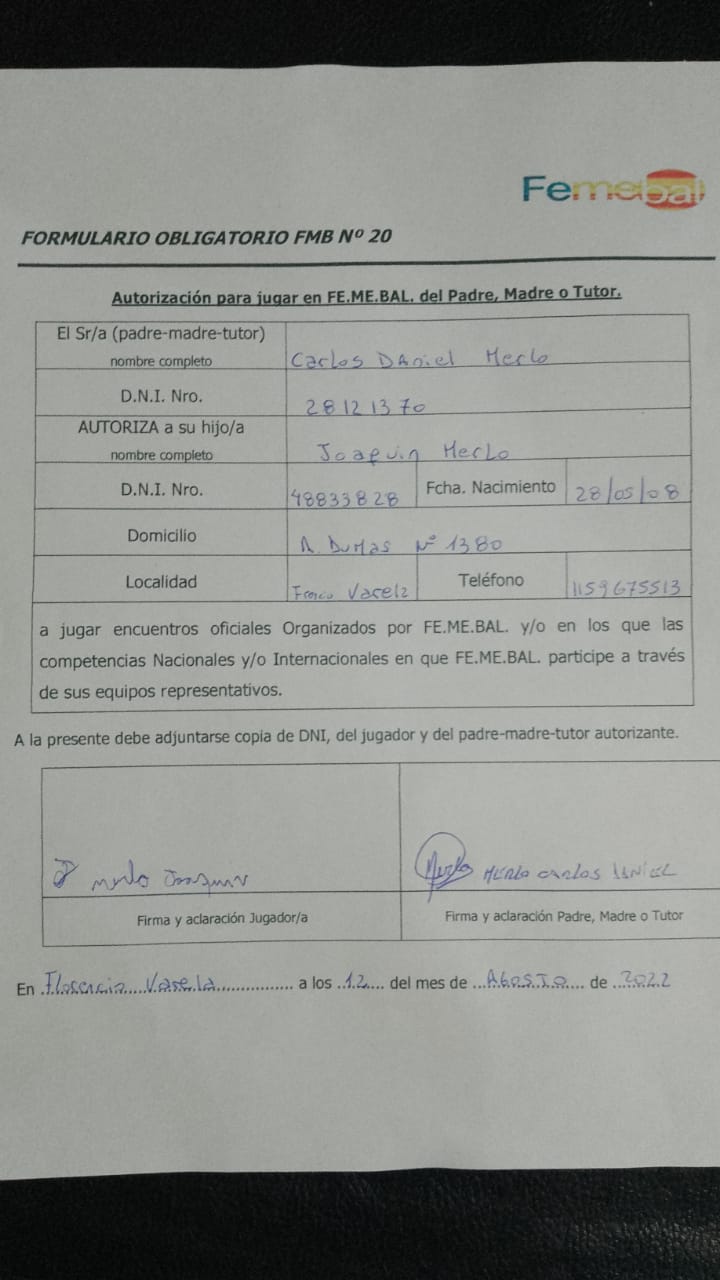 Femebal
FORMULARIO OBLIGATORIO FMB Nº 20
Autorización para jugar en FE.ME.BAL. del Padre, Madre o Tutor.
El Sr/a (padre-madre-tutor)
nombre completo
Carlos DAniel Merlo
D.N.I. Nro.
28121370
AUTORIZA a su hijo/a
nombre completo
Joaquin Merlo
D.N.I. Nro.
48833828
Fcha. Nacimiento
28/05/08
Domicilio
A. Dumas Nº 1380
Localidad
Varela
Teléfono
1159675513
a jugar encuentros oficiales Organizados por FE.ME.BAL. y/o en los que las
competencias Nacionales y/o Internacionales en que FE.ME.BAL. participe a través
de sus equipos representativos.
A la presente debe adjuntarse copia de DNI, del jugador y del padre-madre-tutor autorizante.
Merlo Joaquin
Merlo MERLO CARLOS DANIEL
Firma y aclaración Jugador/a
Firma y aclaración Padre, Madre o Tutor
En Florencio Varela a los 12 del mes de AGOSTO de 2022